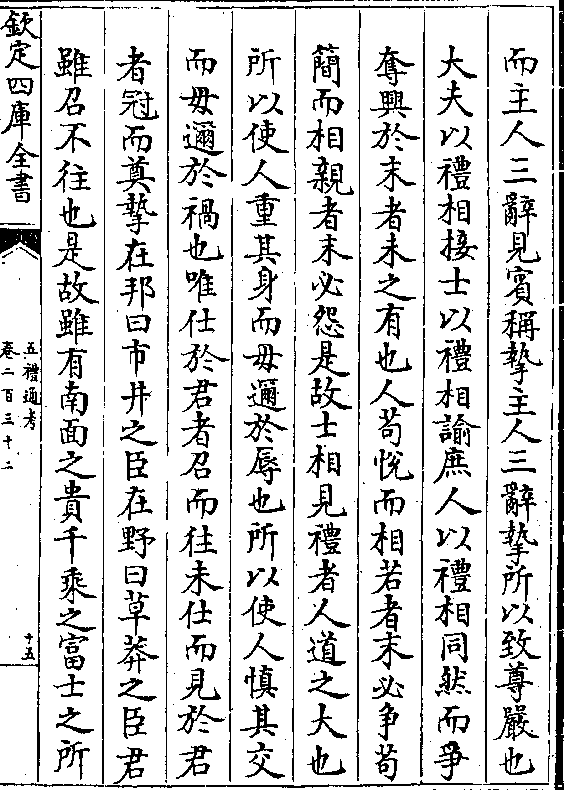 而主人三辭見賓稱摯主人三辭摯所以致尊嚴也
大夫以禮相接士以禮相諭庶人以禮相同然而爭
奪興於末者未之有也人苟悅而相若者末必爭苟
簡而相親者末必怨是故士相見禮者人道之大也
所以使人重其身而毋邇於辱也所以使人慎其交
而毋邇於禍也唯仕於君者召而往未仕而見於君
者冠而奠摯在邦曰市井之臣在野曰草莽之臣君
雖召不往也是故雖有南面之貴千乘之富士之所
欽定四庫全書
五禮通考
卷二百三十二
十五